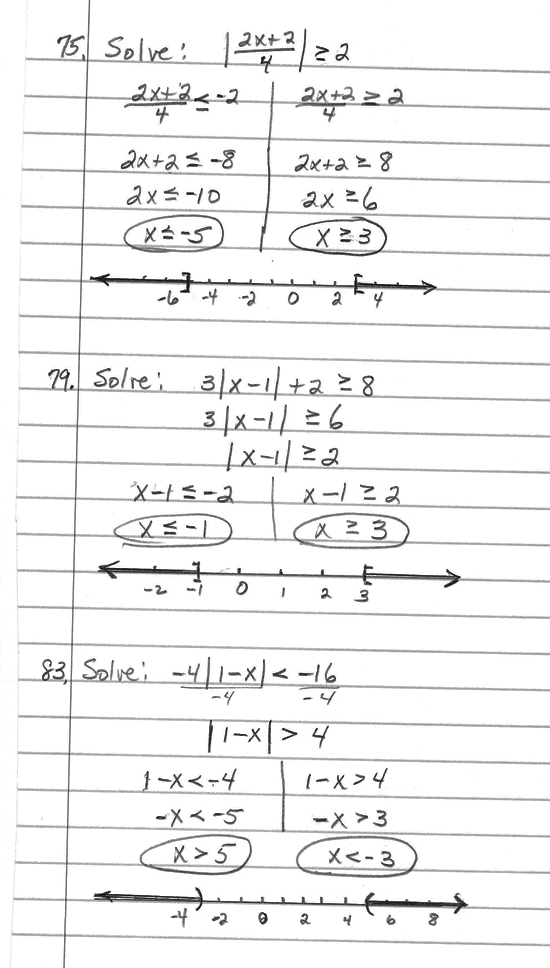 75. Solve: |2x+2/4| ≥ 2
2x+2/4 ≤ -2 | 2x+2/4 ≥ 2
2x+2 ≤ -8 | 2x+2 ≥ 8
2x ≤ -10 | 2x ≥ 6
x ≤ -5 | x ≥ 3
-6 -4 -2 0 2 4
79. Solve: 3|x-1| +2 ≥ 8
3|x-1| ≥ 6
|x-1| ≥ 2
x-1 ≤ -2 | x-1 ≥ 2
x ≤ -1 | x ≥ 3
-2 -1 0 1 2 3
83. Solve: -4|1-x| < -16
-4 -4
|1-x| > 4
1-x < -4 | 1-x > 4
-x < -5 | -x > 3
x > 5 | x < -3
-4 -2 0 2 4 6 8